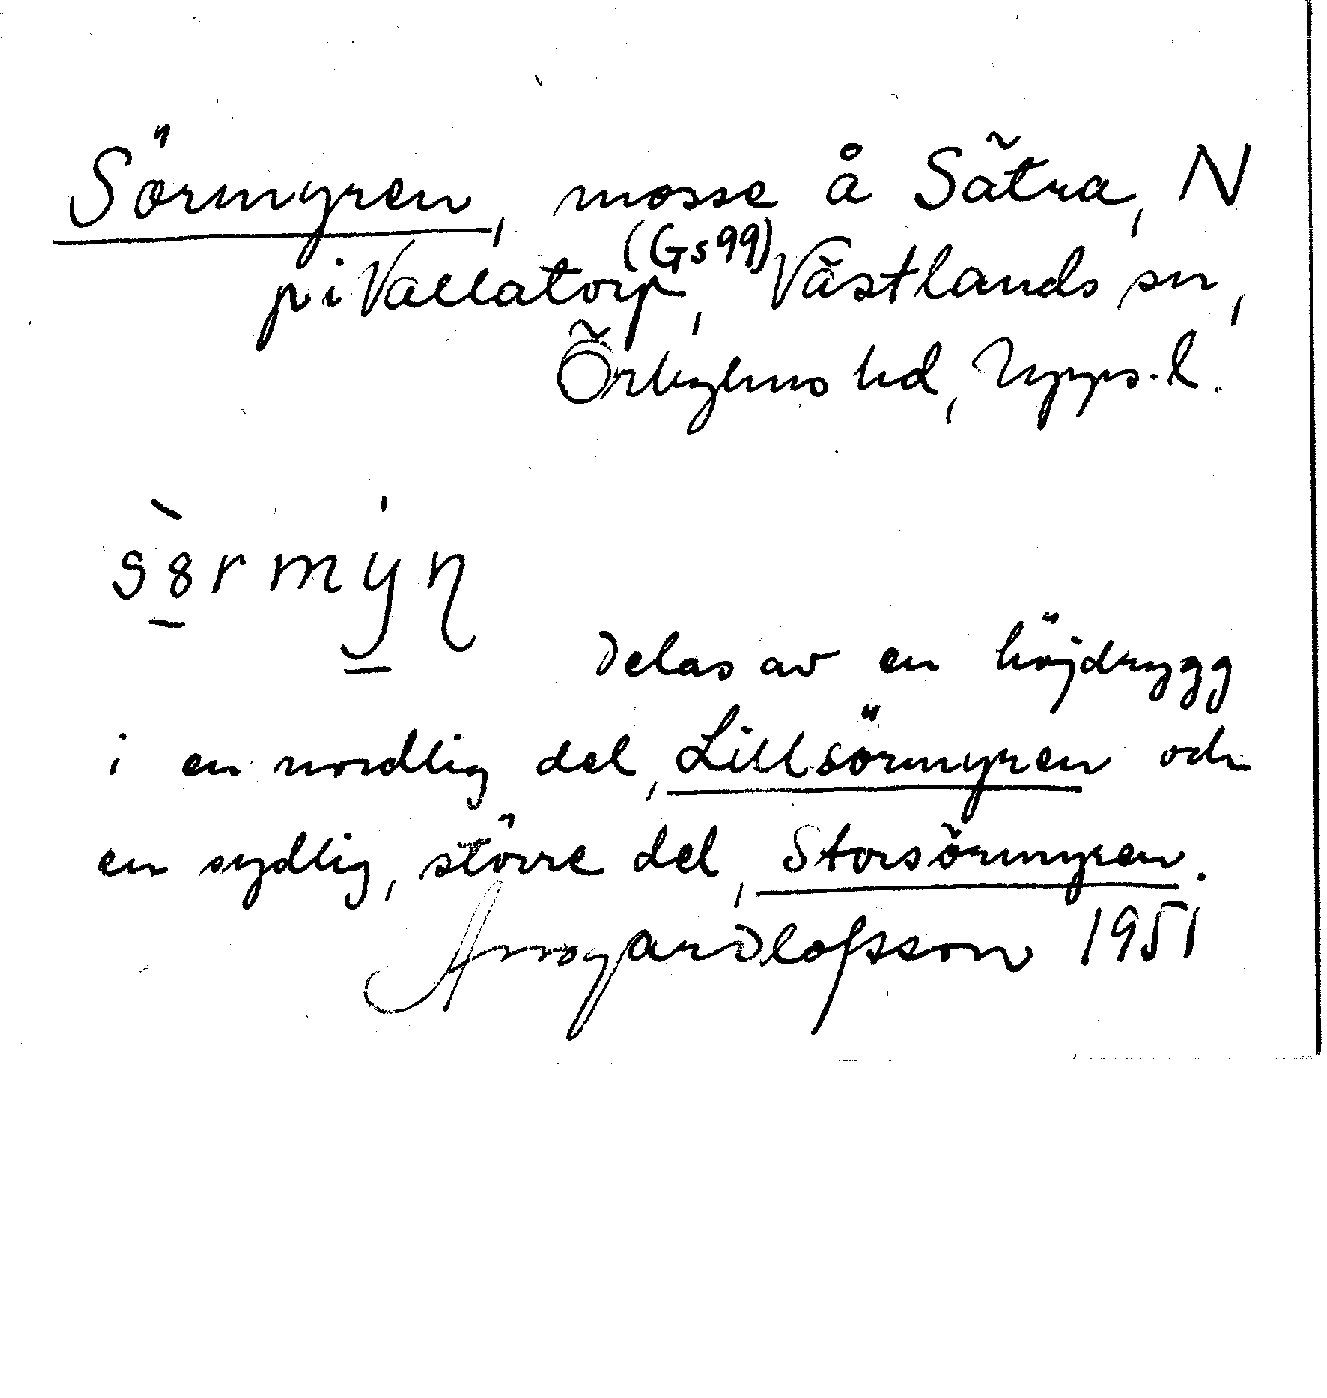 Sörmyren, mosse å Sätra, N
p i Vallatorp, (Gs 99) Västlands sn,
Örbyhus hd, Upps. l.
Delas av en höjdrygg
i en nordlig del, Lillsörmyren och
en sydlig, större del, Storsörmyren.
Olofsson 1951